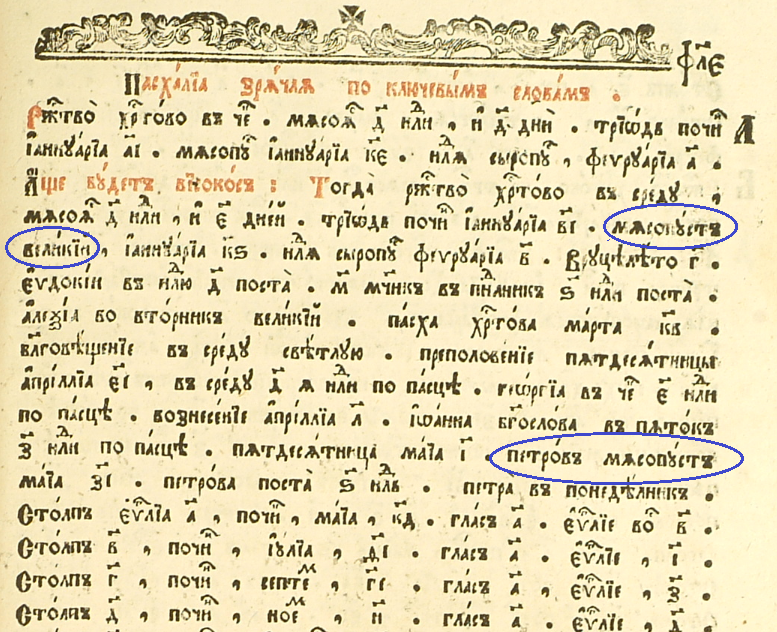 ф҃ле
Пасха́лїа зрѧ́чаѧ по ключевы́мъ слова́мъ .
Ржⷭ҇тво̀ хрⷭ҇то́во въ чеⷦ҇ . мѧсоѧⷣ д҃ нⷣли , и҆ д҃ дни̑ . трїѡ́дь почиⷩ҇ А
і҆аннꙋа́рїа а҃і . мѧсопꙋⷭ҇ і҆аннꙋа́рїа к҃е . нⷣлѧ сыропꙋⷭ҇ , феѵрꙋа́рїа а҃ .
А҆́ще бꙋ́детъ високо́съ : Тогда̀ ржⷭ҇тво̀ хрⷭ҇то́во въ сре́дꙋ ,
мѧсоѧⷣ д҃ нⷣли , и҆ е҃ дне́й . трїѡ́дь почиⷩ҇ і҆аннꙋа́рїа в҃і . мѧсопꙋ́стъ
вели́кїй , і҆аннꙋа́рїа к҃ѕ . нⷣлѧ сыропꙋⷭ҇ феѵрꙋа́рїа в҃ . Врꙋцѣлѣ́то г҃ .
Е҆ѵдокі́и въ нⷣлю д҃ поста̀ . м҃ мч҃никъ въ пѧ́тникъ ѕ҃ нⷣли поста̀ .
а҆леѯі́а во вто́рникъ вели́кїй . па́сха хрⷭ҇то́ва ма́рта к҃в .
блговѣ́щенїе въ сре́дꙋ свѣ́тлꙋю . преполове́нїе пѧтдесѧ́тницы
а҆прі́ллїа е҃і , въ сре́дꙋ д҃ ѧ нⷣли по па́сцѣ . геѡ́ргїа въ чеⷦ҇ е҃ нⷣли
по па́сцѣ . вознесе́нїе а҆прі́ллїа л҃ . і҆ѡа́нна бг҃осло́ва въ пѧто́къ
з҃ нⷣли по па́сцѣ . пѧтдесѧ́тница ма́їа і҃ . петро́въ мѧсопꙋ́стъ
ма́їа з҃і . петро́ва поста̀ ѕ҃ нⷣль . петра̀ въ понедѣ́лникъ .
Сто́лпъ є҆ѵⷢ҇лїа а҃ , почиⷩ҇ , ма́їа , к҃д . гла́съ а҃ . є҆ѵⷢ҇лїе во҆ в҃ .
Сто́лпъ в҃ , почиⷩ҇ , і҆ꙋ́лїа , д҃і . гла́съ а҃ . є҆ѵⷢ҇лїе , і҃ .
Сто́лпъ г҃ , почиⷩ҇ , септеⷨ , г҃і . гла́съ а҃ , є҆ѵⷢ҇лїе , з҃ .
Сто́лпъ д҃ , почиⷩ҇ , ноеⷨ , и҃ . гла́съ а҃ . є҆ѵⷢ҇лїе , д҃ .